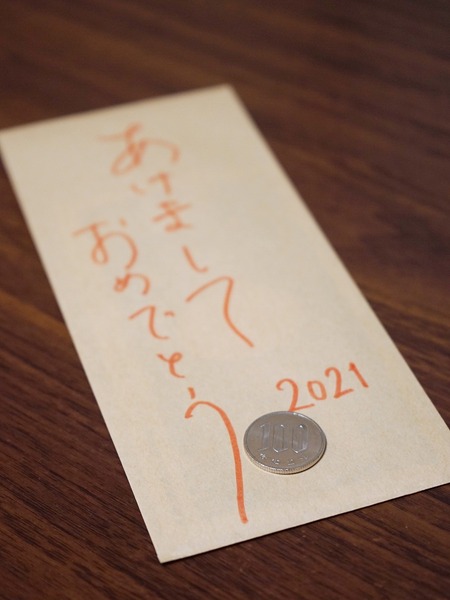 あけまして
おめでとう
2021
100